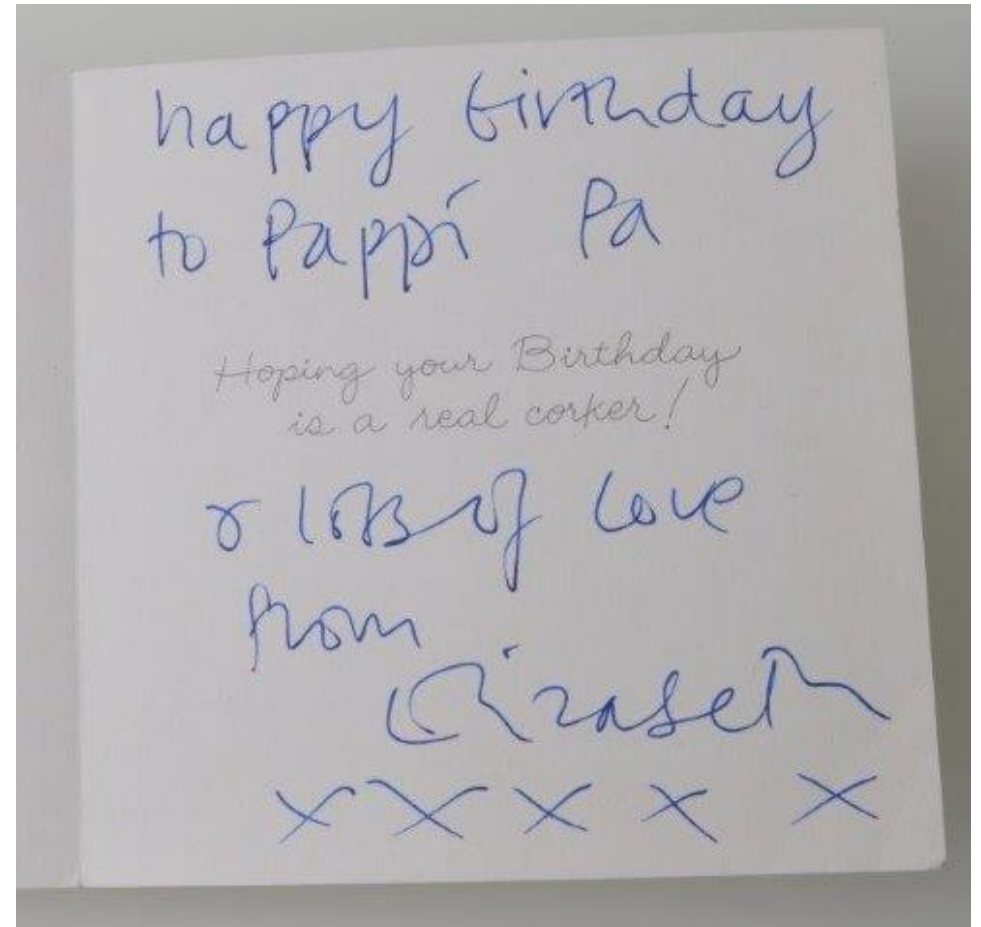 happy birthday
to Pappi Pa
Hoping your Birthday
is a real corker!
& lots of love
from
Elizabeth
X X X X X